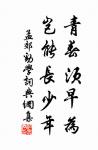 青春須早為
豈能長少年
孟郊勸學詞典網集